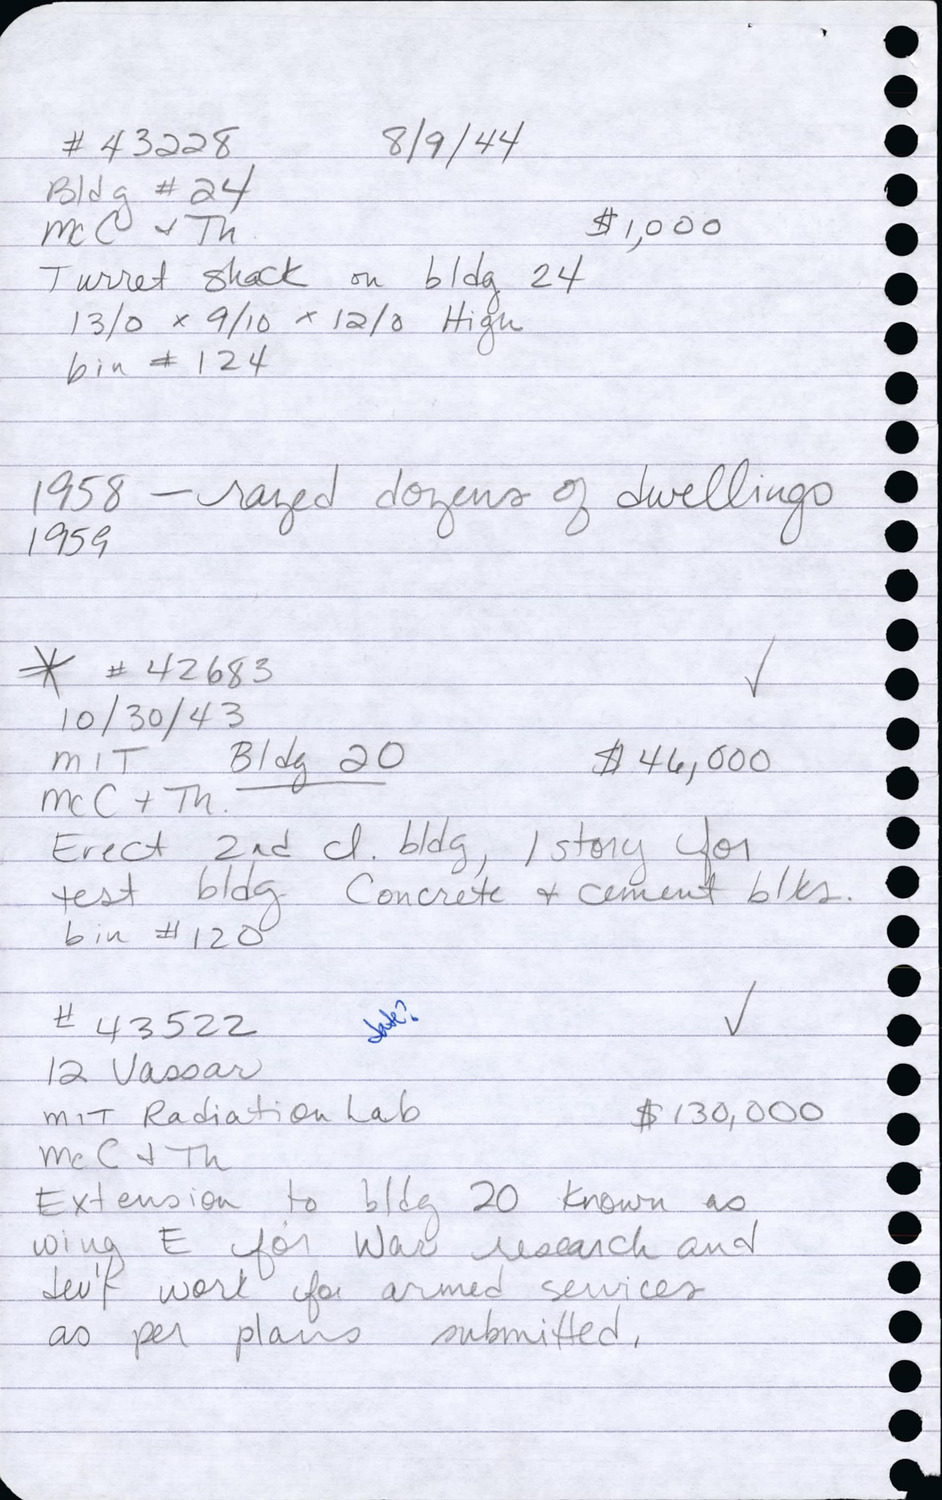 # 43228 8/9/44
Bldg # 24
McC + Th. $1,000
Turret shack on bldg 24
13/0 x 9/10 x 12/0 High
bin # 124
1958 — razed dozens of dwellings
1959
* # 42683 ✓
10/30/43
MIT Bldg 20 $46,000
McC + Th.
Erect 2nd cl. bldg, 1 story for
test bldg. Concrete + cement blks.
bin # 120
# 43522 date? ✓
12 Vassar
MIT Radiation Lab $130,000
McC + Th
Extension to bldg 20 known as
wing E for War research and
dev't work for armed services
as per plans submitted.